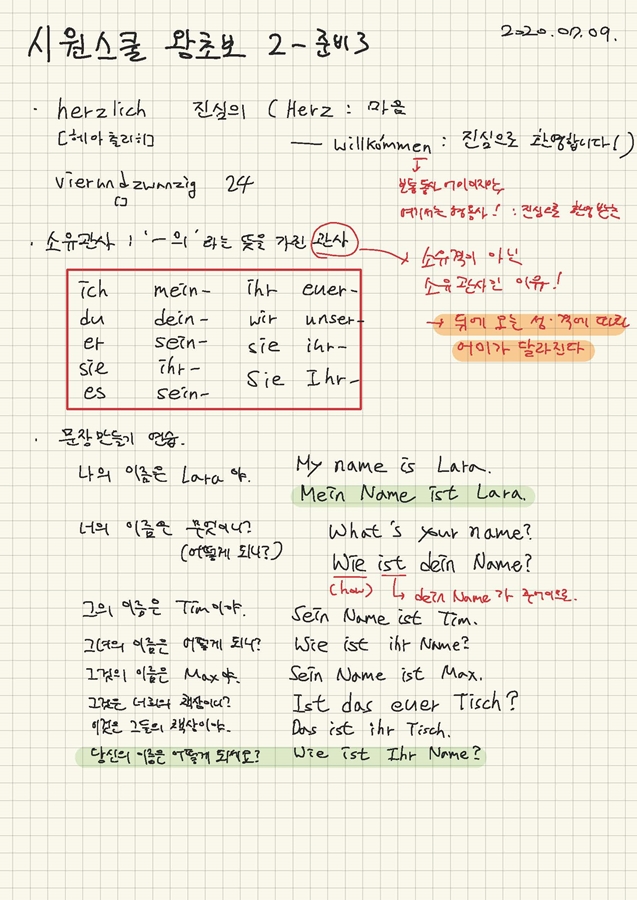 시원스쿨 왕초보 2 - 준비 3
2020.07.09.
· herzlich 진심의 ( Herz : 마음
[헤아츨리히]
— willkommen : 진심으로 환영합니다( )
보통 동사 어미이지만,
여기서는 형용사! : 진심으로 환영받는
vierundzwanzig 24
[]
· 소유관사 : '-의' 라는 뜻을 가진 관사
소유격이 아닌
소유관사인 이유!
→ 뒤에 오는 성·격에 따라
어미가 달라진다
ich mein- ihr euer-
du dein- wir unser-
er sein- sie ihr-
sie ihr- Sie Ihr-
es sein-
· 문장만들기 연습.
나의 이름은 Lara 야. My name is Lara.
Mein Name ist Lara.
너의 이름은 무엇이니? What's your name?
(어떻게 되니?) Wie ist dein Name?
(how) dein Name가 주어이므로.
그의 이름은 Tim이야. Sein Name ist Tim.
그녀의 이름은 어떻게 되니? Wie ist ihr Name?
그것의 이름은 Max야. Sein Name ist Max.
그것은 너희의 책상이니? Ist das euer Tisch?
이것은 그들의 책상이야. Das ist ihr Tisch.
당신의 이름은 어떻게 되세요? Wie ist Ihr Name?